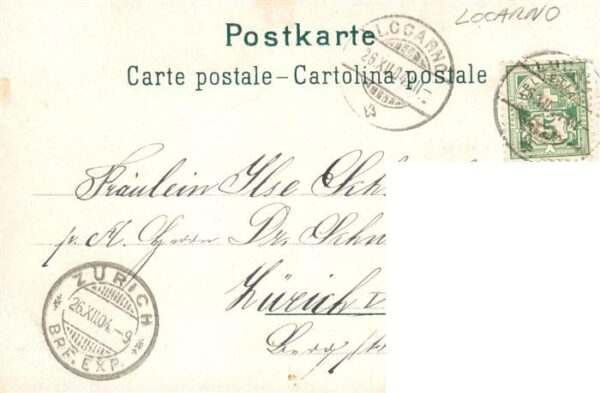 LOCARNO
Postkarte
Carte postale – Cartolina postale
LOCARNO
26.XII.04
5
Fräulein Ilse
p. A. Herrn Dr.
Zürich
ZÜRICH
26.XII.04.-9
BRF. EXP.